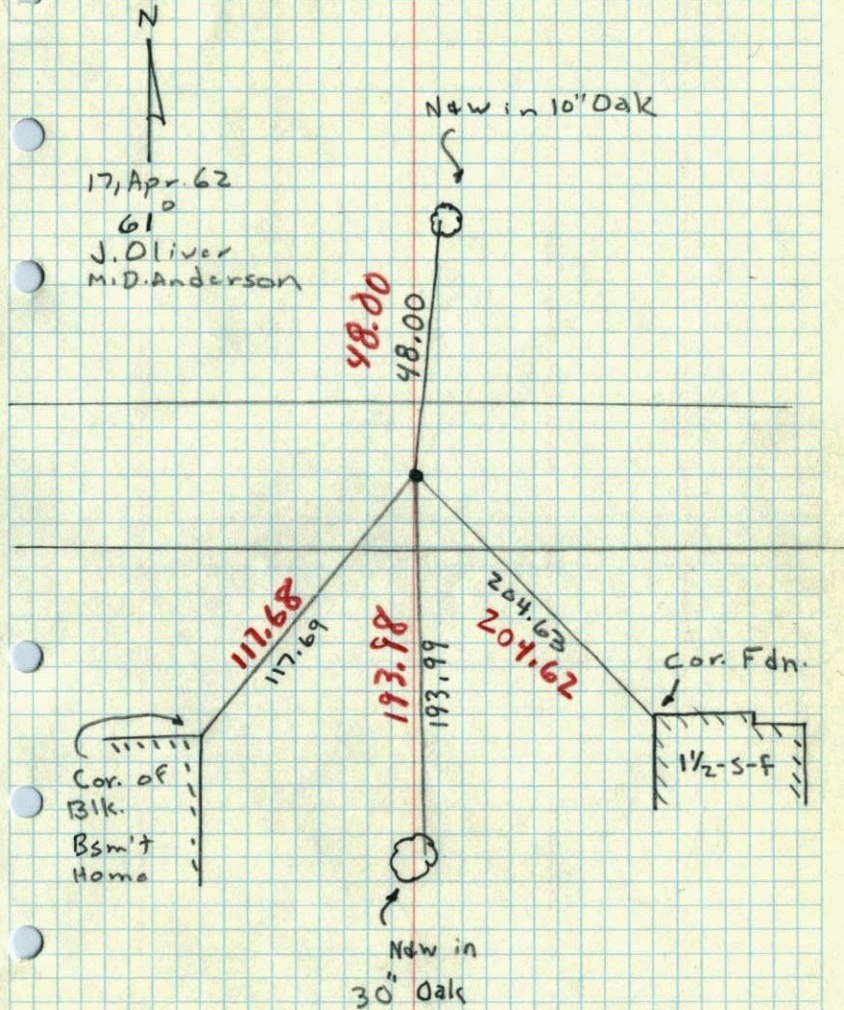 N
N&W in 10" Oak
17, Apr. 62
61°
J. Oliver
M.D. Anderson
48.00
48.00
117.68
117.69
193.98
193.99
204.63
204.62
Cor. Fdn.
1½-S-f
Cor. of
Blk.
Bsm't
Home
N&W in
30" Oak